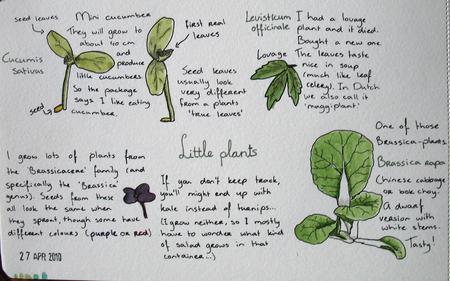 seed leaves
Mini cucumber
They will grow to
about 40 cm
and
produce
little cucumbers.
So the package
says. I like eating
cucumber.
Cucumis
Sativus
seed
first real
leaves
Seed leaves
usually look
very different
from a plants
'true leaves'
Levisticum
officinale
Lovage
I had a lovage
plant and it died.
Bought a new one.
The leaves taste
nice in soup
(much like leaf
celery). In Dutch
we also call it
'maggiplant'
Little plants
I grow lots of plants from
the 'Brassicaceae' family (and
specifically the 'Brassica'
genus). Seeds from these
all look the same when
they sprout, though some have
different colours (purple or red)
If you don't keep track,
you'll might end up with
kale instead of turnips...
(I grow neither, so I mostly
have to wonder what kind
of salad grows in that
container...)
One of those
Brassica-plants.
Brassica rapa
(Chinese cabbage
or bok choy)
A dwarf
version with
white stems.
Tasty!
27 APR 2010